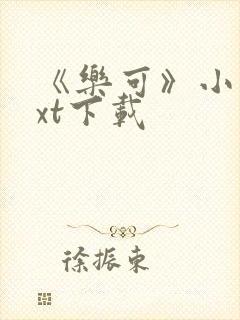 《樂可》小
xt下載
徐振東